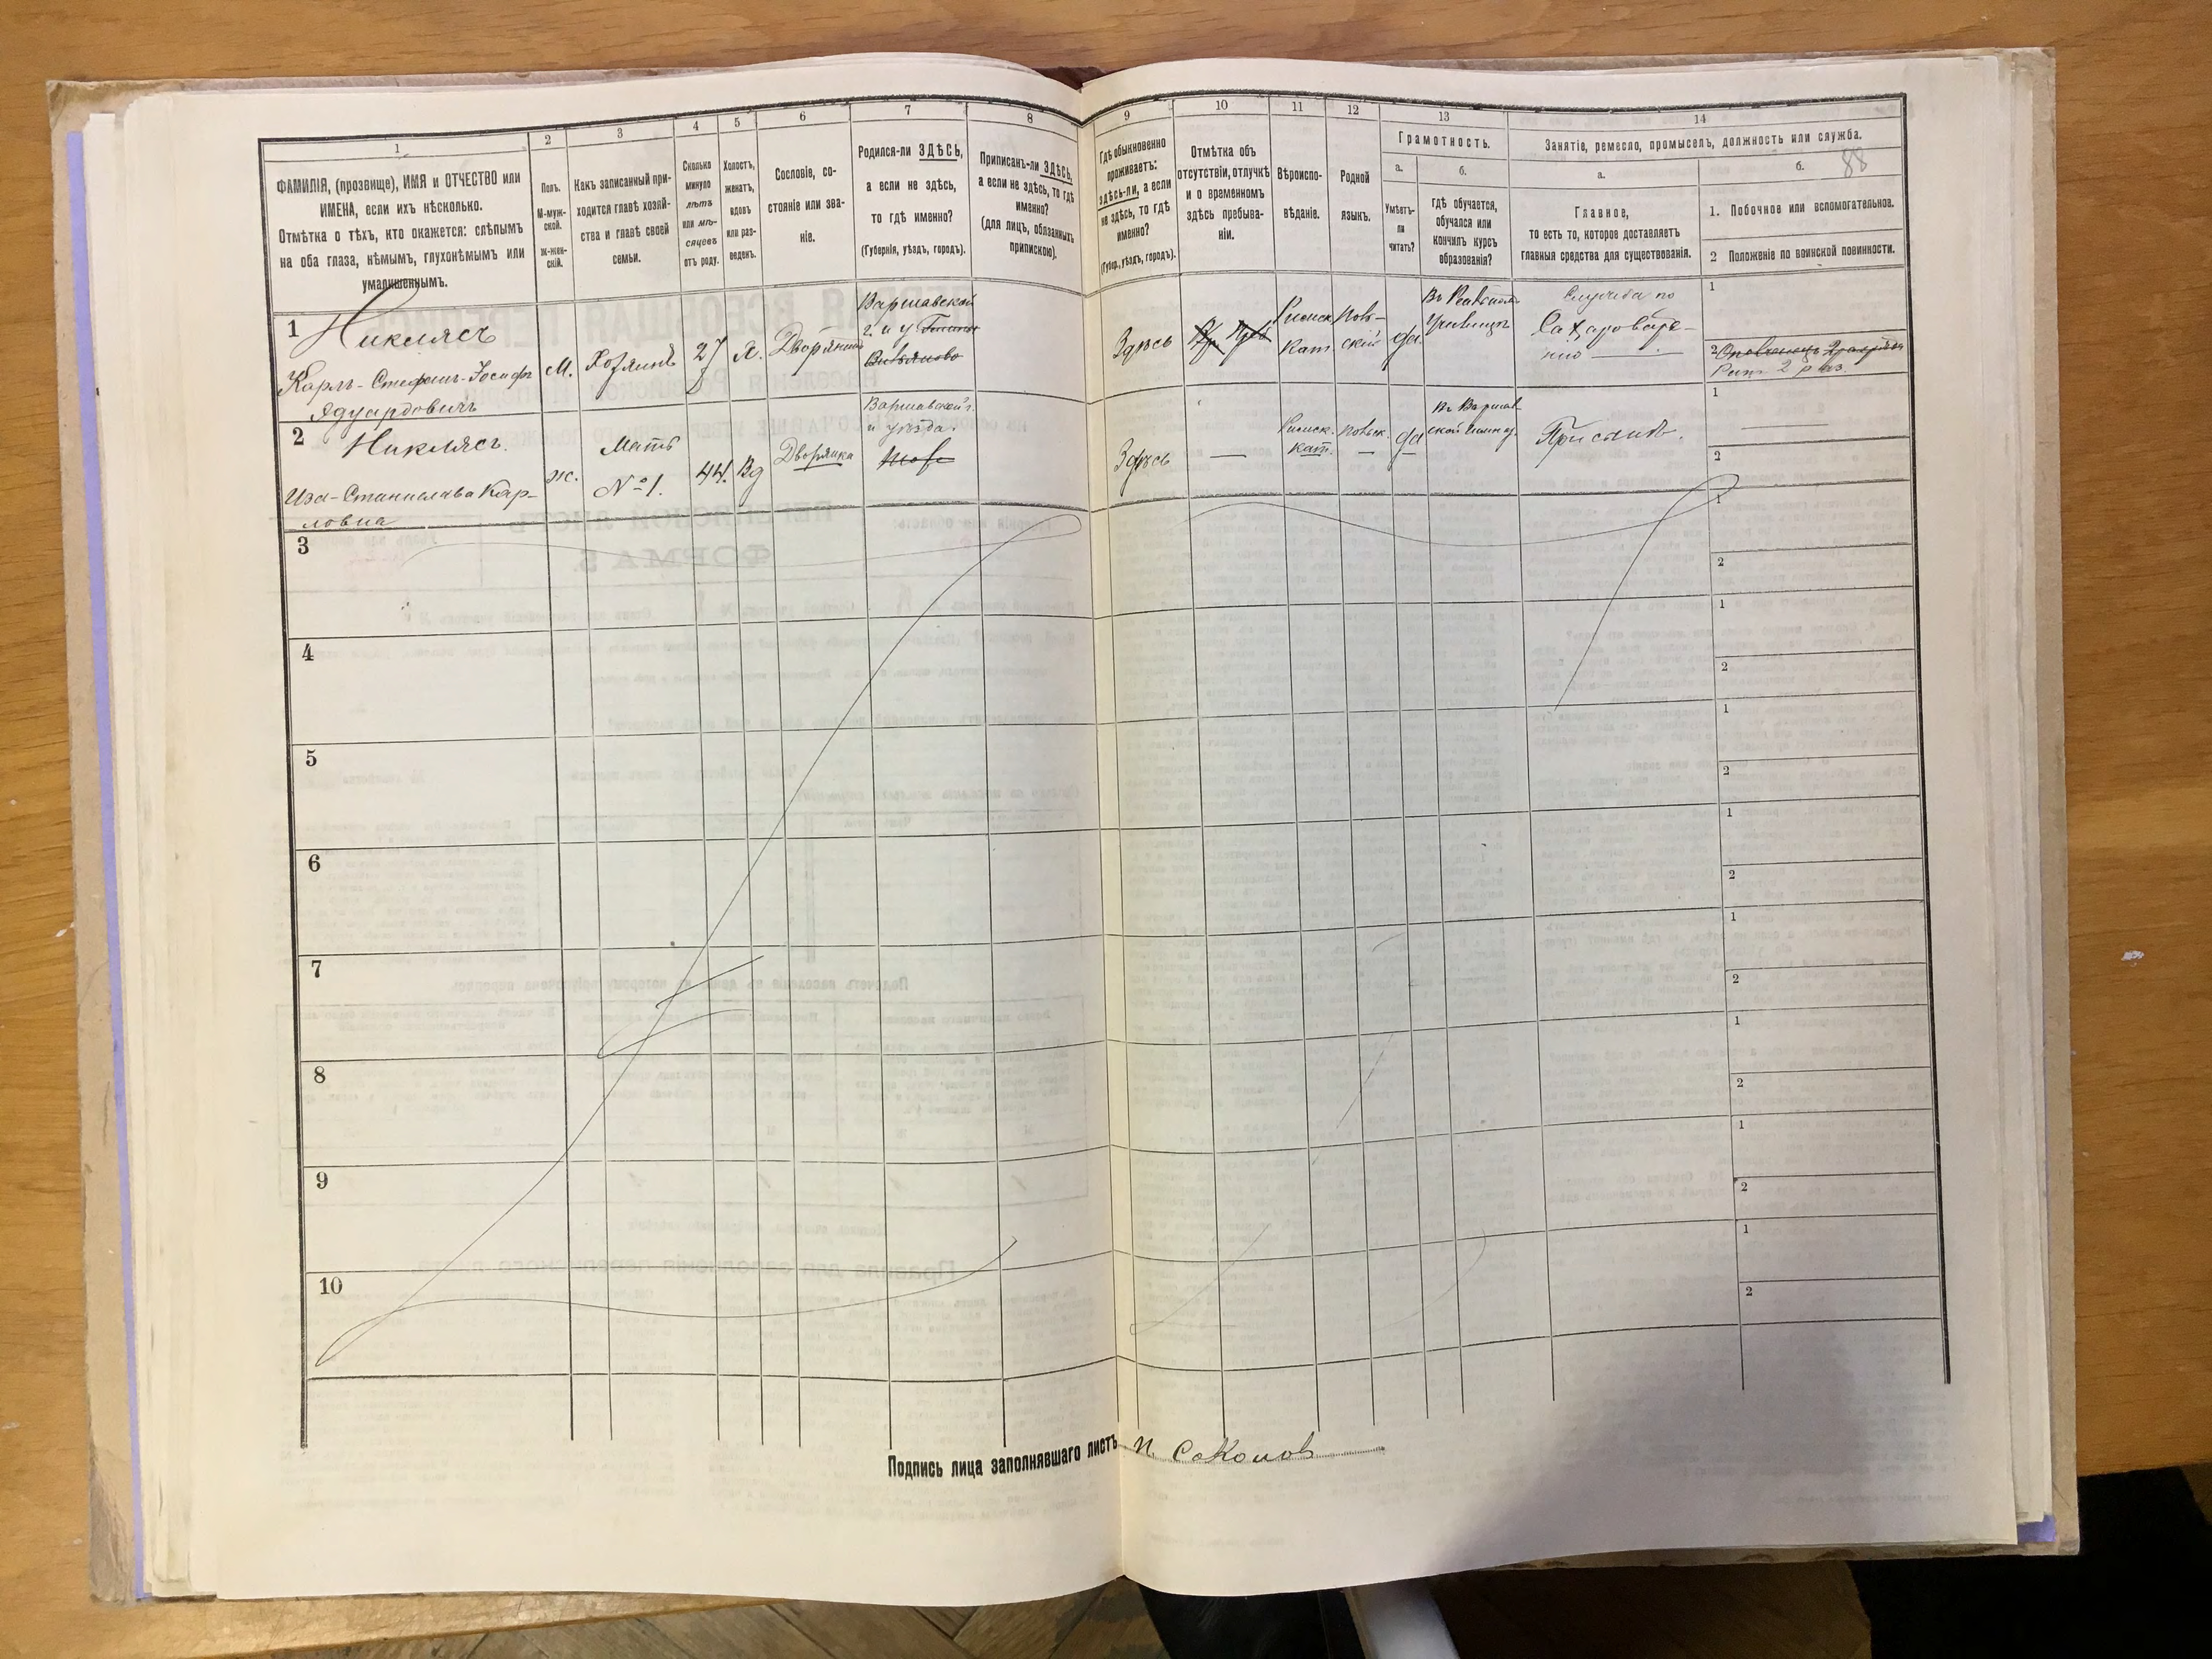 1
ФАМИЛІЯ, (прозвище), ИМЯ и ОТЧЕСТВО или
ИМЕНА, если ихъ нѣсколько.
Отмѣтка о тѣхъ, кто окажется: слѣпымъ
на оба глаза, нѣмымъ, глухонѣмымъ или
умалишеннымъ.
2
Полъ.
М-муж-
ской.
Ж-жен-
скій.
3
Какъ записанный при-
ходится главѣ хозяй-
ства и главѣ своей
семьи.
4
Сколько
минуло
лѣтъ
или мѣ-
сяцевъ
отъ роду.
5
Холостъ,
женатъ,
вдовъ
или раз-
веденъ.
6
Сословіе, со-
стояніе или зва-
ніе.
7
Родился-ли ЗДѢСЬ,
а если не здѣсь,
то гдѣ именно?
(Губернія, уѣздъ, городъ).
8
Приписанъ-ли ЗДѢСЬ,
а если не здѣсь, то гдѣ
именно?
(для лицъ, обязанныхъ
припискою).
9
Гдѣ обыкновенно
проживаетъ:
здѣсь-ли, а если
не здѣсь, то гдѣ
именно?
(Губер., уѣздъ, городъ).
10
Отмѣтка объ
отсутствіи, отлучкѣ
и о временномъ
здѣсь пребыва-
ніи.
11
Вѣроиспо-
вѣданіе.
12
Родной
языкъ.
13
Грамотность.
а.
Умѣетъ-
ли
читать?
б.
гдѣ обучается,
обучался или
кончилъ курсъ
образованія?
14
Занятіе, ремесло, промыселъ, должность или служба.
а.
Главное,
то есть то, которое доставляетъ
главныя средства для существованія.
б.
88
1. Побочное или вспомогательное.
2 Положеніе по воинской повинности.
1
Никлясъ
Карлъ-Стефанъ-Іосифъ
Эдуардовичъ
М.
Хозяинъ
27
Х.
Дворянинъ
Варшавской
г. и у
Здѣсь
Римск.
Кат.
Поль-
скій
да
Въ Реальномъ
Училищѣ
Служба по
Сахароваре-
нію
1
2
Рат. 2 раз.
2
Никлясъ.
Иза-Станислава Кар-
ловна
Ж.
Мать
№ 1.
44.
Вд
Дворянка
Варшавской г.
и уѣзда.
Здѣсь
—
Римск.
кат.
Польск.
да
Въ Варшав-
ской
При сынѣ.
1
2
3
1
2
4
1
2
5
1
2
6
1
2
7
1
2
8
1
2
9
1
2
10
1
2
Подпись лица заполнявшаго листъ П. Соколов